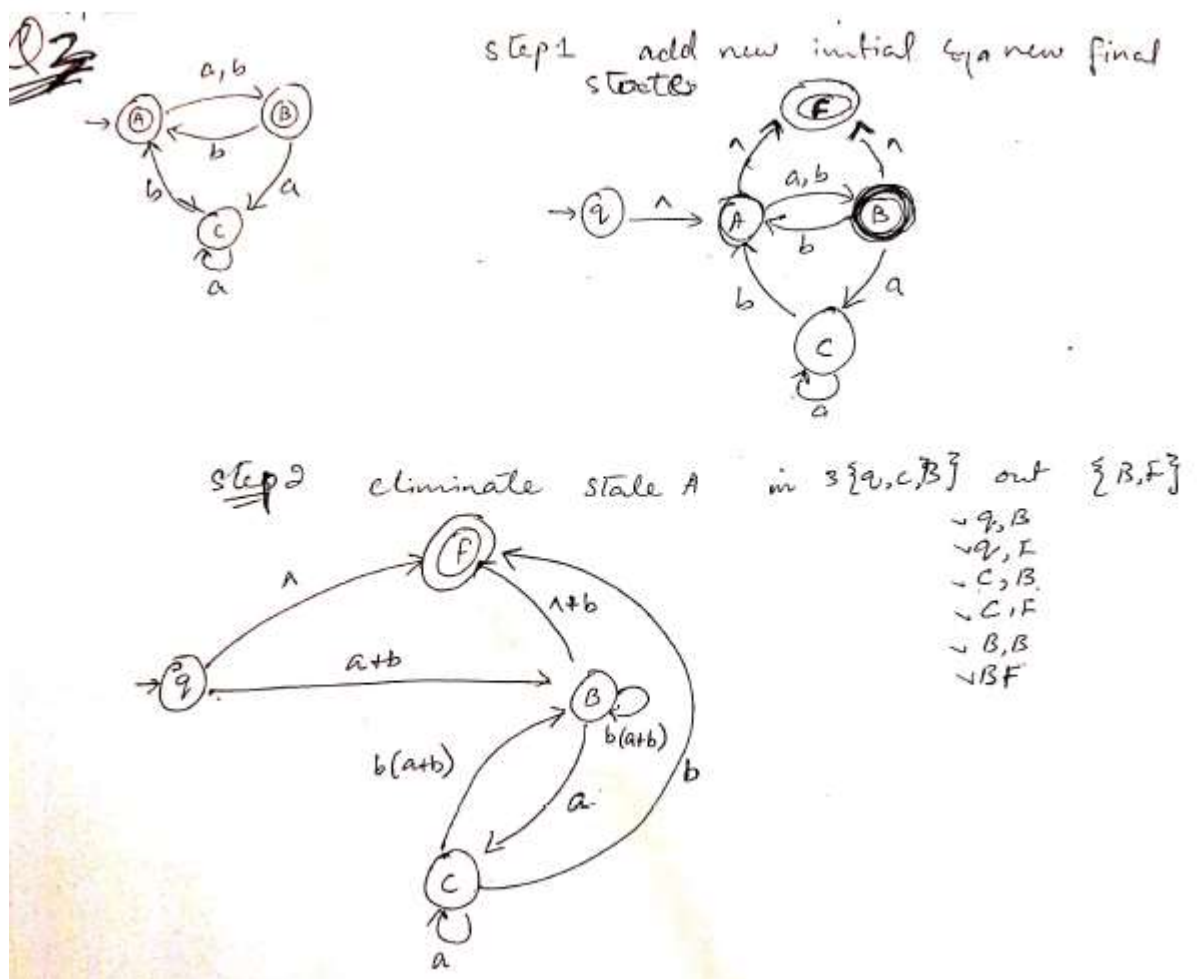 Q2
step1 add new initial & a new final
states
a, b
A
B
b
b
a
C
a
F
^
^
a, b
q
^
A
B
b
b
a
C
a
step 2 eliminate state A in 3{q,C,B} out {B,F}
q, B
q, F
C, B
C, F
B, B
BF
F
^
^+b
a+b
q
B
b(a+b)
b(a+b)
a
b
C
a